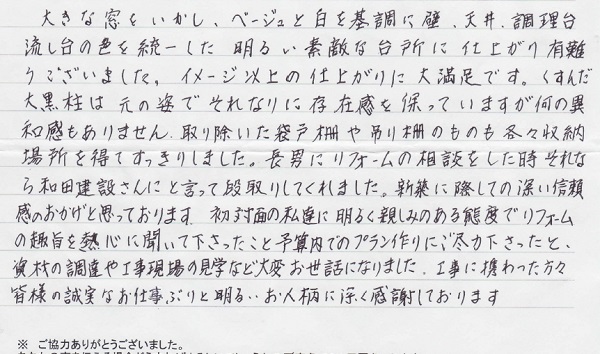 大きな窓をいかし、ベージュと白を基調に壁、天井、調理台
流し台の色を統一した 明るい素敵な台所に仕上がり有難
うございました。イメージ以上の仕上がりに大満足です。くすんだ
大黒柱は元の姿でそれなりに存在感を保っていますが何の異
和感もありません、取り除いた袋戸棚や吊り棚のものも各々収納
場所を得てすっきりしました。長男にリフォームの相談をした時それな
ら和田建設さんにと言って段取りしてくれました。新築に際しての深い信頼
感のおかげと思っております 初対面の私達に明るく親しみのある態度でリフォーム
の趣旨を熱心に聞いて下さったこと予算内でのプラン作りにご尽力下さったこと、
資材の調達や工事現場の見学など大変お世話になりました、工事に携わった方々
皆様の誠実なお仕事ぶりと明るいお人柄に深く感謝しております
※ ご協力ありがとうございました。